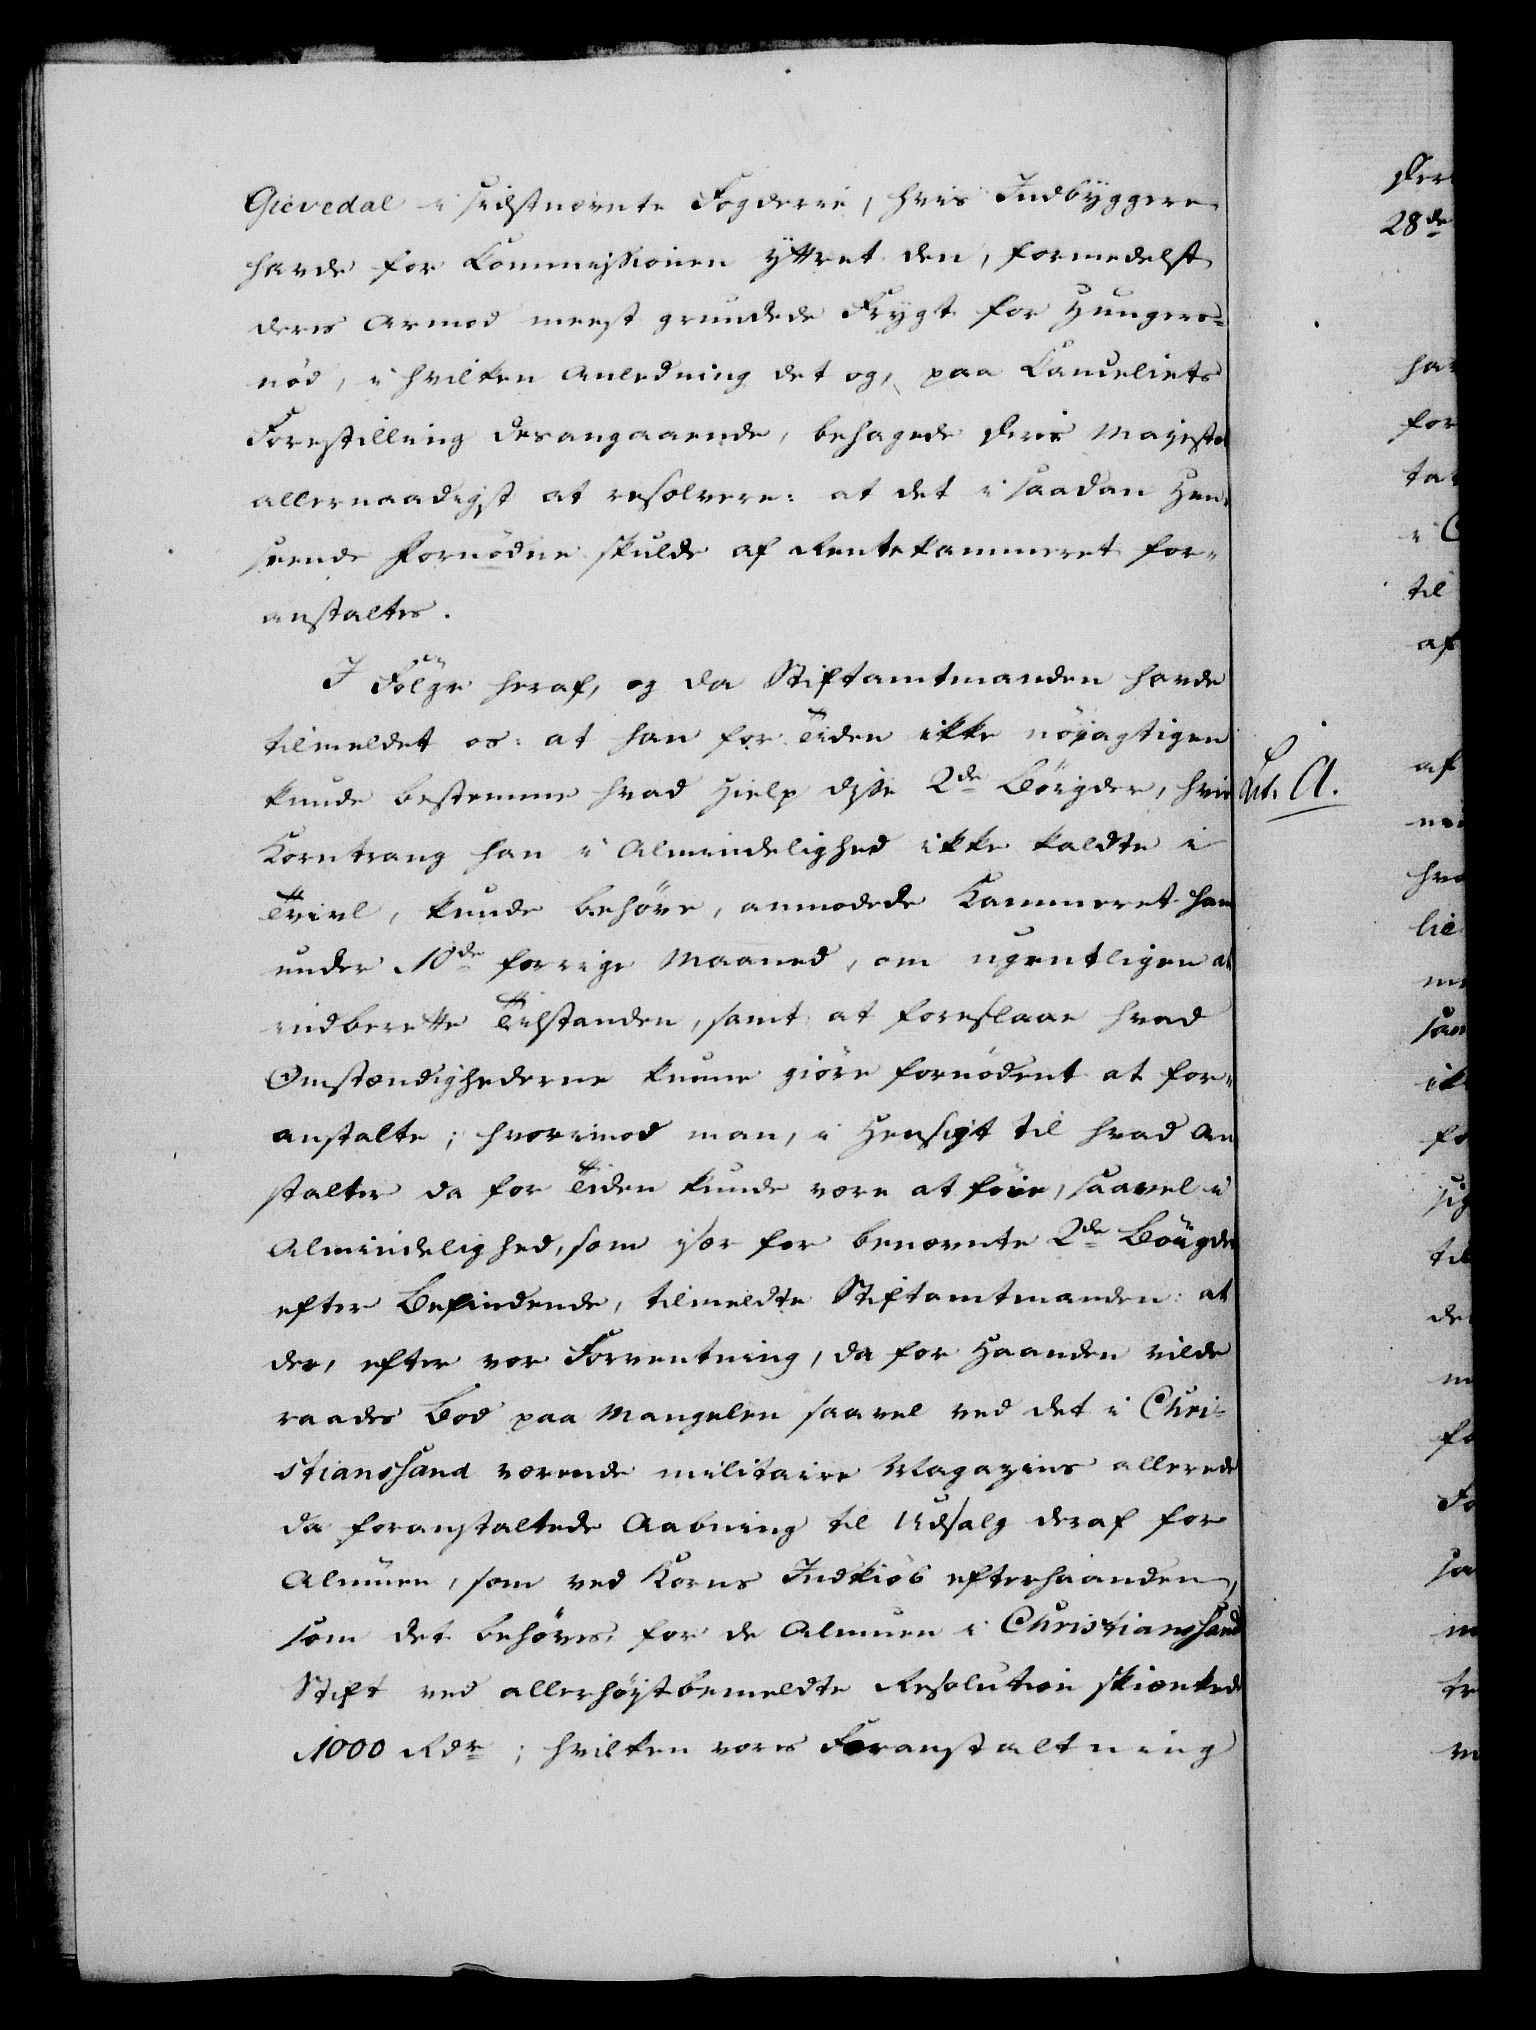 Gievedal i sidstnevnte Fogderie, hvis Indbyggere
havde for Commissionen yttret den, formedelst
deres Armod meest grundede Frygt for Hungers-
nöd, i hvilken Anledning det og, paa Cancelliets
Forestilling desangaaende, behagede Deres Majestet
allernaadigst at resolvere: at det i saadan Hen-
seende fornödne skulde af Rentekammeret for-
anstaltes.
I Fölge heraf, og da Stiftamtmanden havde
tilmeldet os: at han for Tiden ikke nöjagtigen
kunde bestemme hvad Hielp disse 2de Böigder, hvis
Korntrang han i Almindelighed ikke kaldte i
Tvivl, kunde behöve, anmodede Kammeret ham
under 10de forrige Maaned, om ugentligen at
indberette Tilstanden, samt at foreslaae hvad
Omstendighederne kunne giöre fornödent at for-
anstalte; hvorimod man, i Hensigt til hvad An
stalter da for Tiden kunde være at föie, saavel i
Almindelighed, som især for benævnte 2de Böigder
efter Befindende, tilmeldte Stiftamtmanden: at
der, efter vor Forventning, da for Haanden vilde
raades Bod paa Mangelen saavel ved det i Chri-
stianssand værende militaire Magazins allerede
da foranstaltede Aabning til Udsalg deraf for
Almuen, som ved Korns Indkiöb efterhaanden,
som det behöves, for de Almuen i Christianssand
Stift ved allerhöistbemeldte Resolution skienkede
1000 Rdr; hvilken vores Foranstaltning
Lit. A.
Der
28de
for
til
af
af